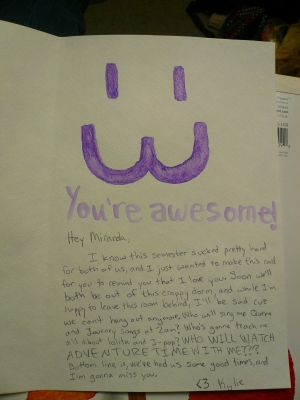 You're awesome!
Hey Miranda,
I know this semester sucked pretty hard
for both of us, and I just wanted to make this card
for you to remind you that I love you. Soon we'll
both be out of this crappy dorm, and while I'm
happy to leave this room behind, I'll be sad cuz
we can't hang out anymore. Who will sing me Queen
and Journey songs at 2am? Who's gonna teach me
all about lolita and J-pop? WHO WILL WATCH
ADVENTURE TIME WITH ME???
Bottom line is, we've had us some good times, and
I'm gonna miss you.
<3 Kylie